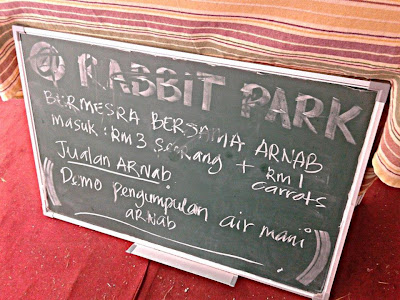 @ RABBIT PARK
BERMESRA BERSAMA ARNAB
masuk : RM 3 seorang + RM 1
carrots
Jualan ARNAB
Demo pengumpulan air mani
ARNAB